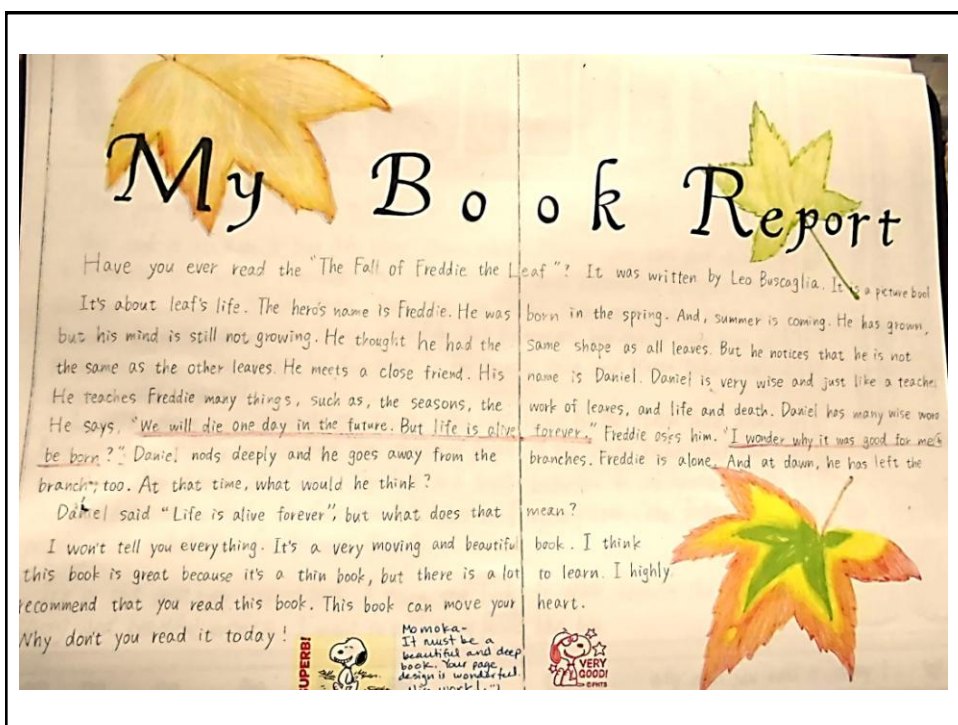 My Book Report
Have you ever read the "The Fall of Freddie the Leaf"? It was written by Leo Buscaglia. It is a picture book
It's about leaf's life. The hero's name is Freddie. He was born in the spring. And, summer is coming. He has grown,
but his mind is still not growing. He thought he had the same shape as all leaves. But he notices that he is not
the same as the other leaves. He meets a close friend. His name is Daniel. Daniel is very wise and just like a teache
He teaches Freddie many things, such as, the seasons, the work of leaves, and life and death. Daniel has many wise
He says, "We will die one day in the future. But life is alive forever." Freddie him. "I wonder why it was good for me
be born?" Daniel nods deeply and he goes away from the branches. Freddie is alone. And at dawn, he has left the
branch, too. At that time, what would he think?
Daniel said "Life is alive forever", but what does that mean?
I won't tell you everything. It's a very moving and beautiful book. I think
this book is great because it's a thin book, but there is a lot to learn. I highly
recommend that you read this book. This book can move your heart.
Why don't you read it today!
SUPERB!
Momoka-
It must be a
beautiful and deep
book. Your page
design is wonderful.
work!
VERY
GOOD!